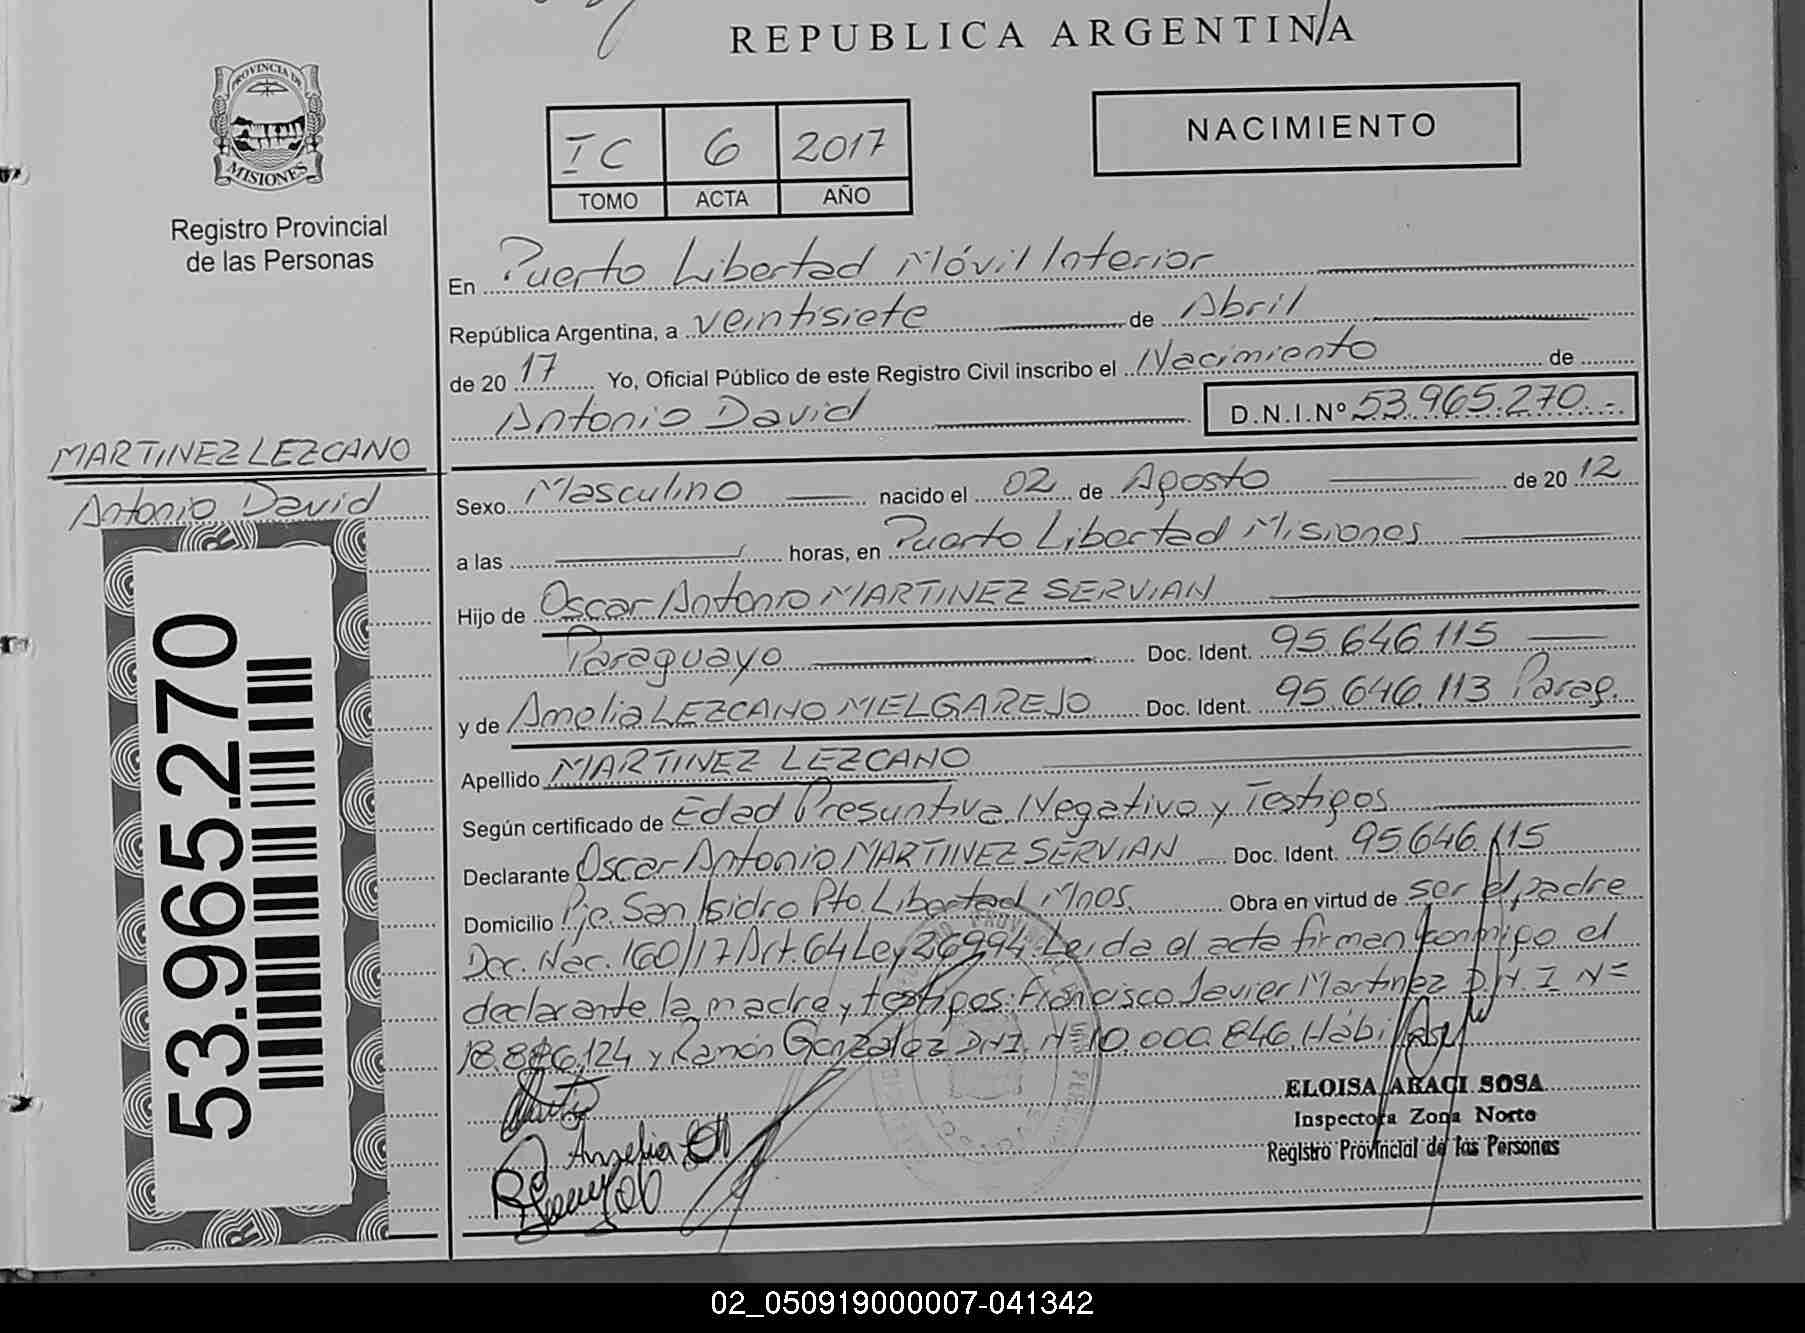 REPUBLICA ARGENTINA
PROVINCIA DE
MISIONES
Registro Provincial
de las Personas
IC 6 2017
TOMO ACTA AÑO
NACIMIENTO
En Puerto Libertad Móvil Interior
República Argentina, a veintisiete de Abril
de 20 17 Yo, Oficial Público de este Registro Civil inscribo el Nacimiento de
Antonio David D.N.I.Nº 53.965.270.-
MARTINEZ LEZCANO
Antonio David
53.965.270
Sexo Masculino nacido el 02 de Agosto de 20 12
a las horas, en Puerto Libertad Misiones
Hijo de Oscar Antonio MARTINEZ SERVIAN
Paraguayo Doc. Ident. 95.646.115
y de Amelia LEZCANO MELGAREJO Doc. Ident. 95.646.113 Parag.
Apellido MARTINEZ LEZCANO
Según certificado de Edad Presuntiva Negativo y Testigos
Declarante Oscar Antonio MARTINEZ SERVIAN Doc. Ident. 95.646.115
Domicilio Pje. San Isidro Pto. Libertad Mnes. Obra en virtud de ser el padre
Dec. Nac. 160/17 Art. 64 Ley 26994. Leída el acta firman conmigo el
declarante la madre y testigos: Francisco Javier Martinez D.N.I Nº
18.886.124 y Ramón Gonzalez DNI. Nº 10.000.846. Hábiles
ELOISA ARACI SOSA
Inspectora Zona Norte
Registro Provincial de las Personas
02_050919000007-041342